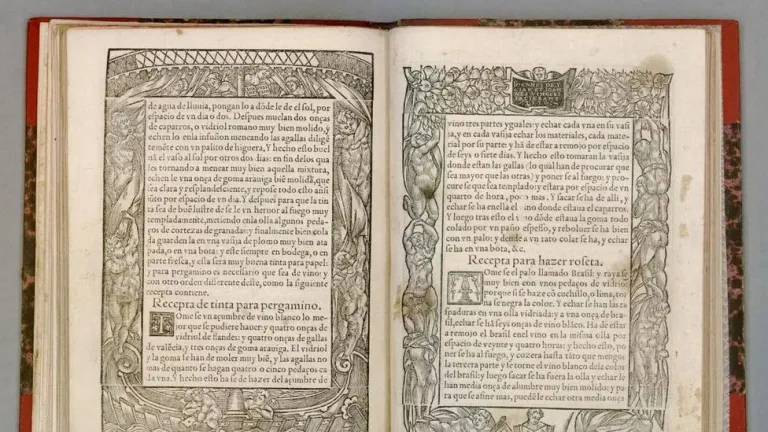 de agua de lluuia, pongan lo a dōde le de el sol, por
espacio de vn dia o dos. Despues muelan dos onças
de caparros, o vidriol romano muy bien molido, y
echen lo en la infusion meneando las agallas diligē
temēte con vn palito de higuera, Y hecho esto buel
na el vaso al sol por otros dos dias: en fin delos qua
les tornando a menear muy bien aquella mixtura,
echen le vna onça de goma arauiga biē molida, que
sea clara y resplandesciente, y repose todo esto assi
mismo por espacio de vn dia. Y despues para que la tin
ta sea de buē lustre de se le vn heruor al fuego muy
templadamente, metiendo enla olla algunos pedaços
de cortezas de granadas: y finalmente bien cola
da guarden la en vna vasija de plomo muy bien ata
pada, o en vna bota: y este siempre en bodega, o en
parte fresca, y esta sera muy buena tinta para papel:
y para pergamino es necessario que sea de vino: y
con otro orden differente deste, como la siguiente
recepta contiene.
Recepta de tinta para pergamino.
TOme se vn açumbre de vino blanco lo me
jor que se pudiere hauer: y quatro onças de
vidriol de flandes: y quatro onças de gallas
de valēcia, y tres onças de goma arauiga. El vidriol
y la goma se han de moler muy biē, y las agallas no
mas de quanto se hagan quatro o cinco pedaços ca
da vna. Y hecho esto ha se de hazer del açumbre de
vino tres partes yguales: y echar cada vna en su vasi
ja, y en cada vasija echar los materiales, cada mate-
rial por su parte: y há de estar a remojo por espacio
de seys o siete dias. Y hecho esto tomaran la vasija
donde estan las gallas (lo qual han de procurar que
sea mayor que las otras) y poner se al fuego: y pro-
cure se que sea templado: y estara por espacio de vn
quarto de hora, poco mas. Y sacar se ha de alli, y
echar se ha enella el vino donde estaua el caparros.
Y luego tras esto el vino dōde estaua la goma todo
colado por vn paño espesso, y reboluer se ha bien
con vn palo; y dende a vn rato colar se ha, y echar
se ha en vna bota, &c.
Recepta para hazer roseta.
TOme se el palo llamado Brasil: y raya se
muy bien con vnos pedaços de vidrio:
porque si se haze cō cuchillo, o lima, tor
na se negra la color. Y echar se han las ra
spaduras en vna olla vidriada: y a vna onça de bra-
sil, echar se há seys onças de vino blāco. Ha de estar
a remojo el brasil enel vino en la misma olla por
espacio de veynte y quatro horas: y hecho esto, po
ner se ha al fuego, y cozera hasta tāto que mengue
la tercera parte y se torne el vino blanco dela color
del brasil: y luego sacar se ha fuera la olla y echar le
han media onça de alumbre muy bien molido: y pa
ra que se afine mas, puedē le echar otra media onça